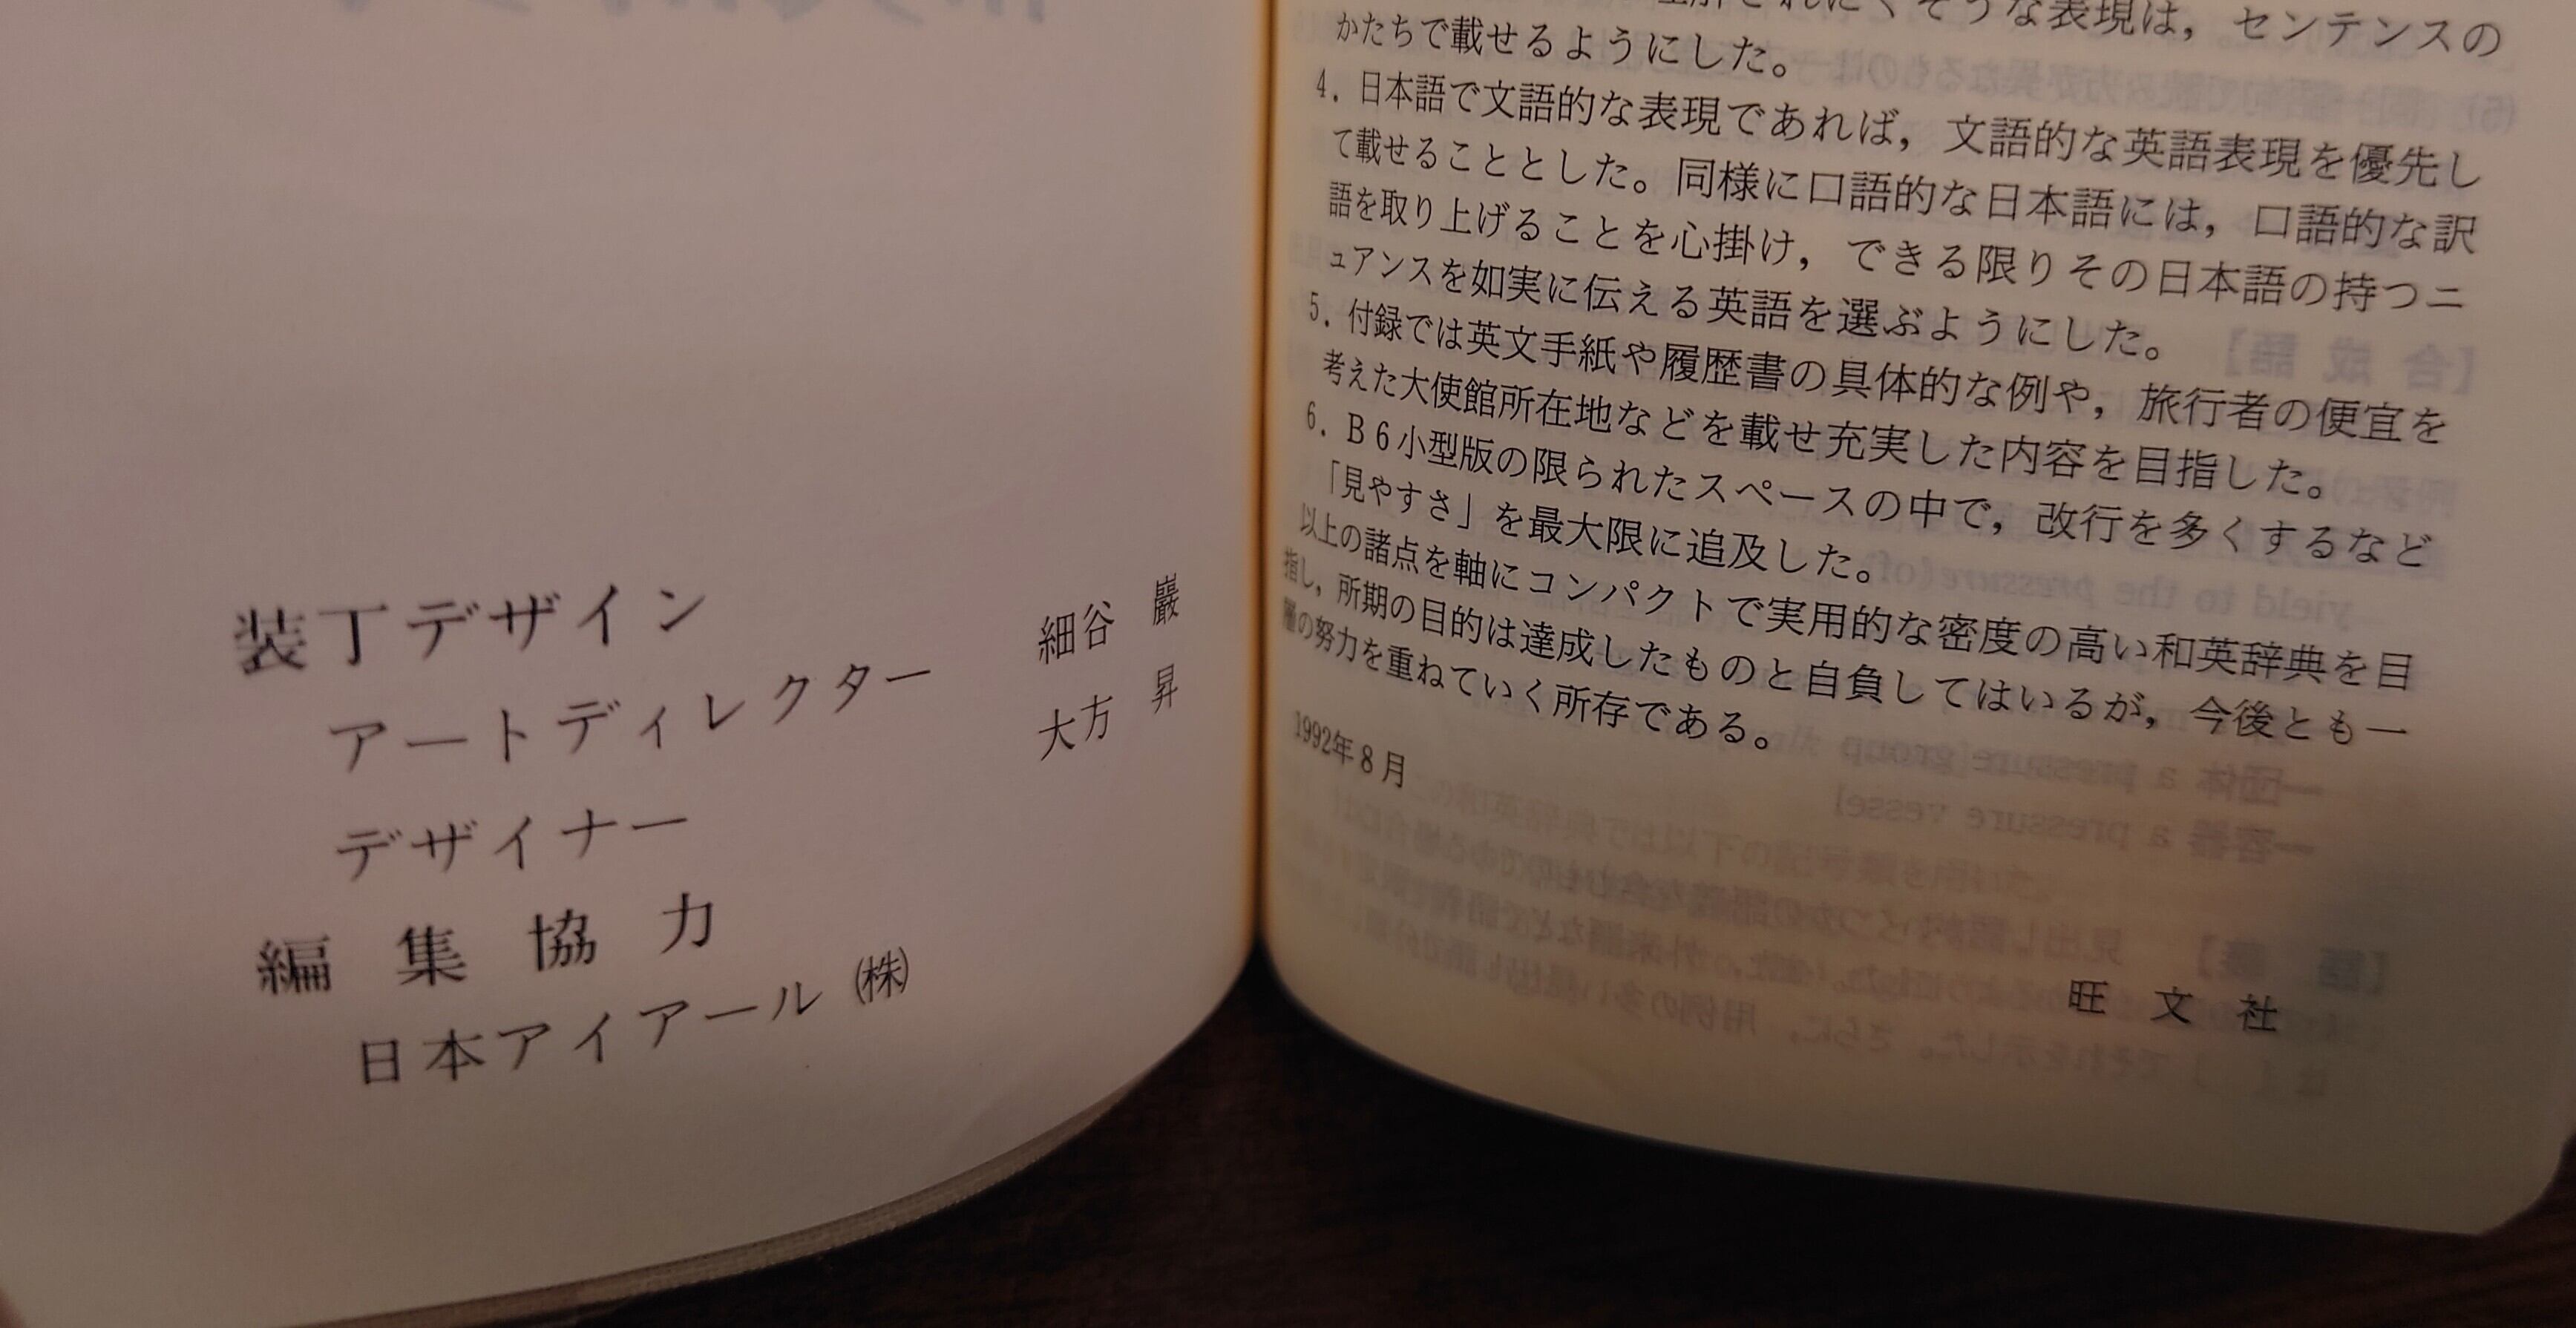 装丁デザイン
アートディレクター 細谷 巖
デザイナー 大方 昇
編集協力
日本アイアール(株)
されにくそうな表現は，センテンスの
かたちで載せるようにした。
4．日本語で文語的な表現であれば，文語的な英語表現を優先し
て載せることとした。同様に口語的な日本語には，口語的な訳
語を取り上げることを心掛け，できる限りその日本語の持つニ
ュアンスを如実に伝える英語を選ぶようにした。
5．付録では英文手紙や履歴書の具体的な例や，旅行者の便宜を
考えた大使館所在地などを載せ充実した内容を目指した。
6．B6小型版の限られたスペースの中で，改行を多くするなど
「見やすさ」を最大限に追及した。
以上の諸点を軸にコンパクトで実用的な密度の高い和英辞典を目
指し，所期の目的は達成したものと自負してはいるが，今後とも一
層の努力を重ねていく所存である。
1992年8月
旺文社